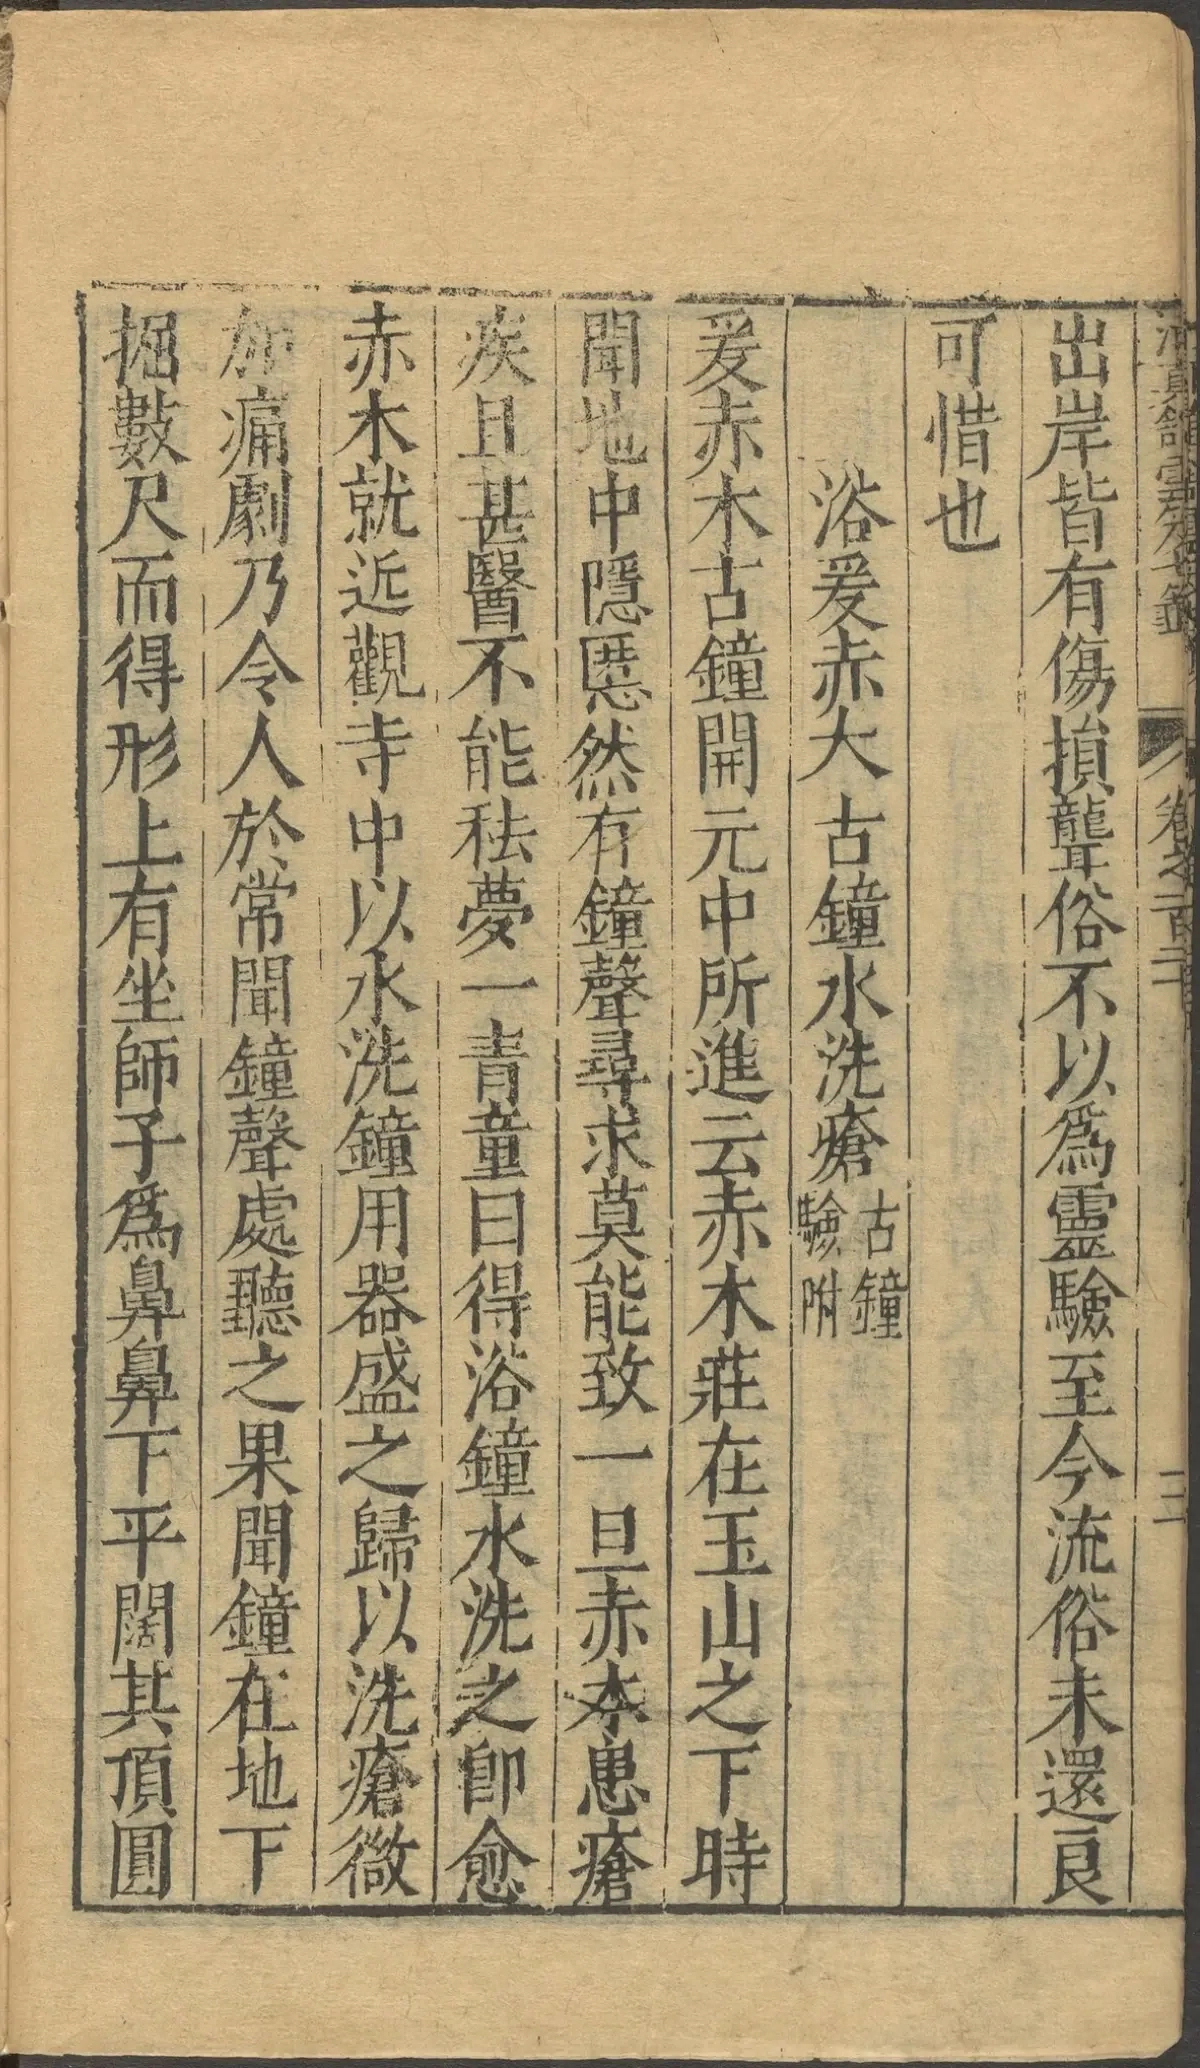 清真館雲笈七籤 卷之一百二十
出岸皆有傷損聾俗不以爲靈驗至今流俗未還良
可惜也
浴爰赤大古鐘水洗瘡 古鐘驗附
爰赤木古鐘開元中所進云赤木莊在玉山之下時
聞地中隱慝然有鐘聲尋求莫能致一旦赤木患瘡
疾且甚醫不能祛夢一青童曰得浴鐘水洗之卽愈
赤木就近觀寺中以水洗鐘用器盛之歸以洗瘡微
加痛劇乃令人於常聞鐘聲處聽之果聞鐘在地下
掘數尺而得形上有坐師子爲鼻鼻下平闊其頂圓